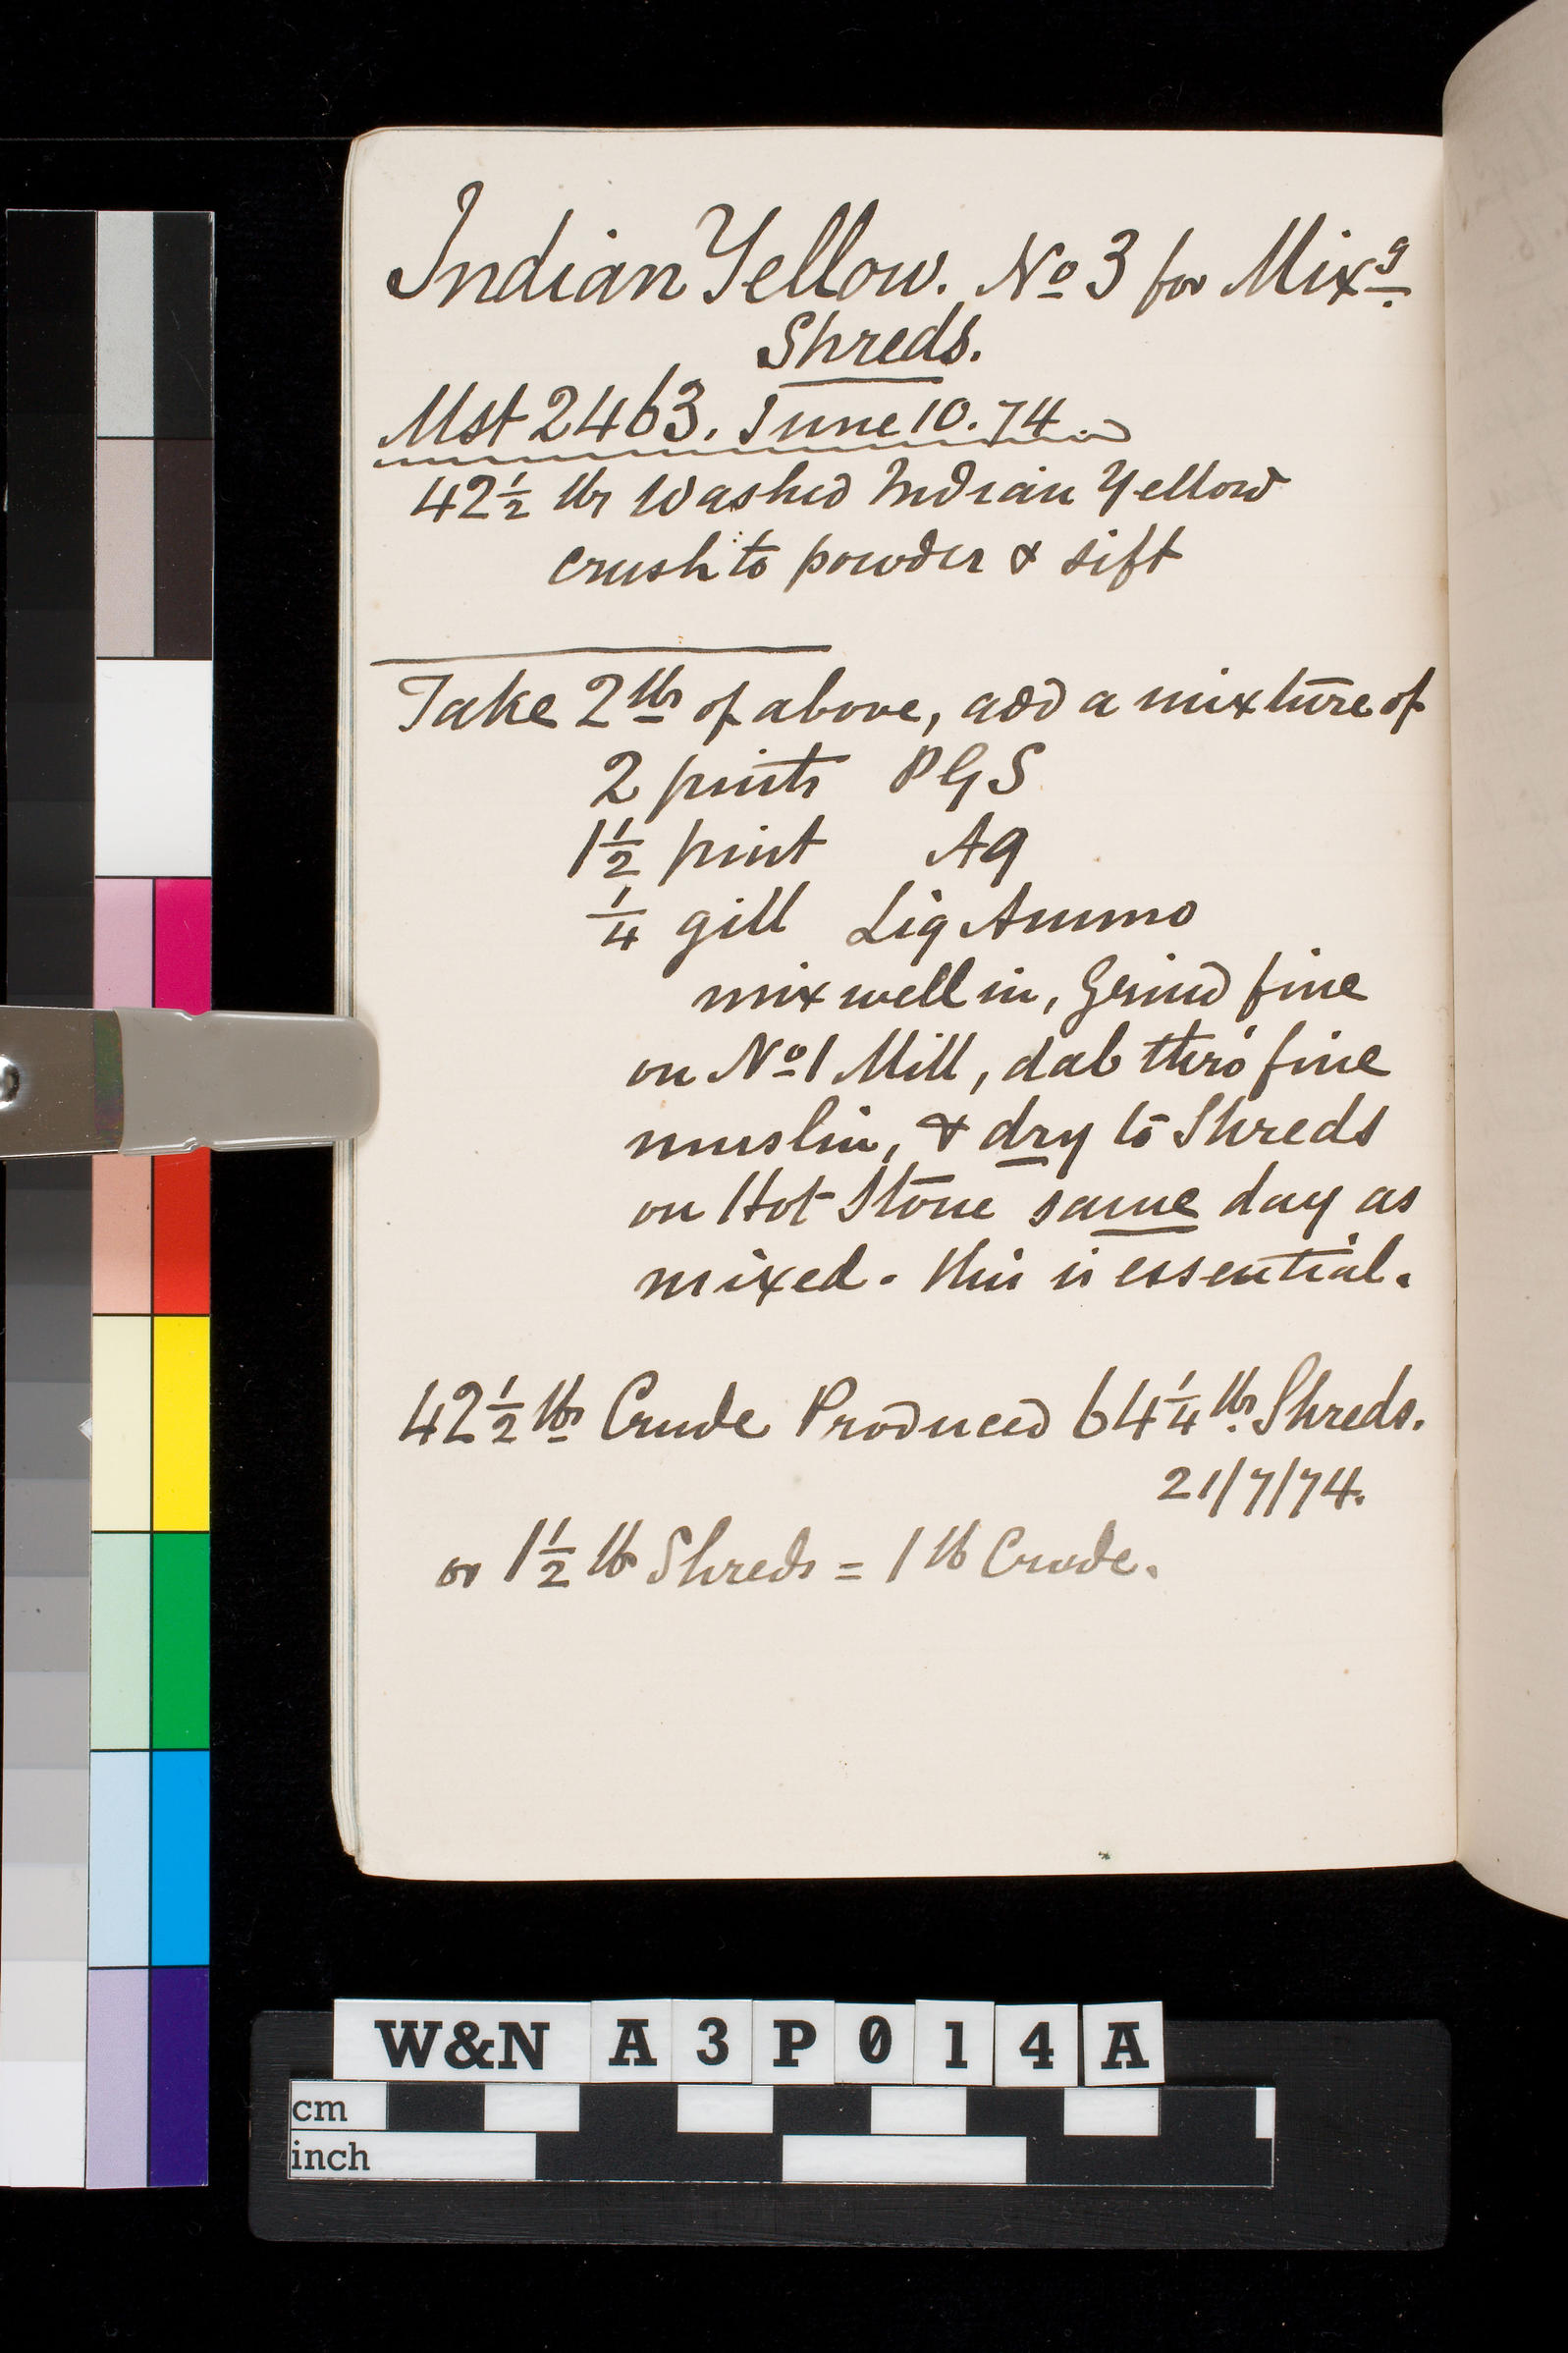 Indian Yellow. No 3 for Mixg.
Shreds.
Mst 2463. June 10. 74
42½ lbs Washed Indian Yellow
crush to powder & sift
Take 2 lbs of above, add a mixture of
2 pints PGS
1½ pint Aq
¼ gill Liq Ammo
mix well in, Grind fine
on No 1 Mill, dab thro' fine
muslin, & dry to Shreds
on Hot Stone same day as
mixed. this is essential.
42½ lbs Crude Produced 64¼ lbs. Shreds.
21/7/74.
or 1½ lb Shreds = 1 lb Crude.
W&N A3P014A
cm
inch